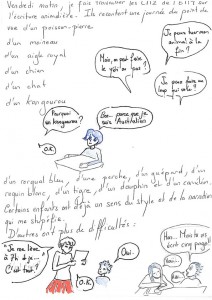 Vendredi matin, je fais travailler les CM2 de l'EIFP sur
l'écriture animalière. Ils racontent une journée du point de
vue d'un poisson-pierre,
d'un moineau
d'un aigle royal
d'un chien
d'un chat
d'un kangourou
Moi, on peut faire le yéti ou pas ?
Je peux tuer mon animal à la fin ?
Je peux faire un loup qui vole ?
Pourquoi un kangourou ?
Ben... parce que je suis Australien
O.K
d'un rorqual bleu, d'une perche, d'un guépard, d'un
requin blanc, d'un tigre, d'un dauphin et d'un caméléon.
Certains enfants ont déjà un sens du style et de la narration
qui me stupéfie.
D'autres ont plus de difficultés :
"Je me lève à 7h et je...
C'est tout ?
Oui.
O.K
Han... Mon tu as écrit cinq pages !